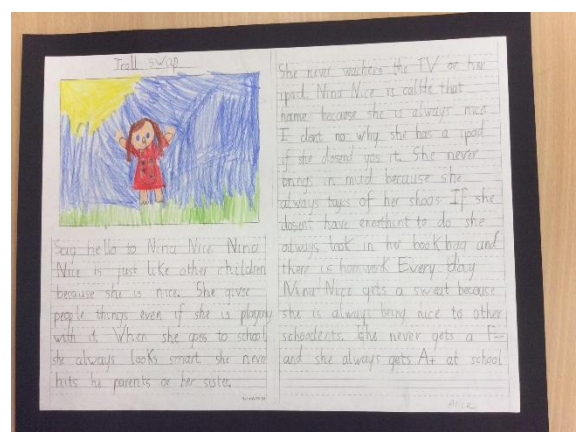 Troll swap
Say hello to Nina Nice. Nina
Nice is just like other children
because she is nice. She givse
people things even if she is playing
with it. When she gos to school
she always looks smart she never
hits he parents or her sister.
She never wachers the TV or her
ipad. Nina Nice is callde that
name because she is always nice
I dont no why she has a ipad
if she dosend yos it. She never
brings in mud because she
always taycs of her shoos If she
dosent have enething to do she
always look in her book bag and
there is homwork Every Day
Nina Nice gets a sweat because
she is always being nice to other
schoodents. She never gets a F-
and she always gets A+ at school
Alice